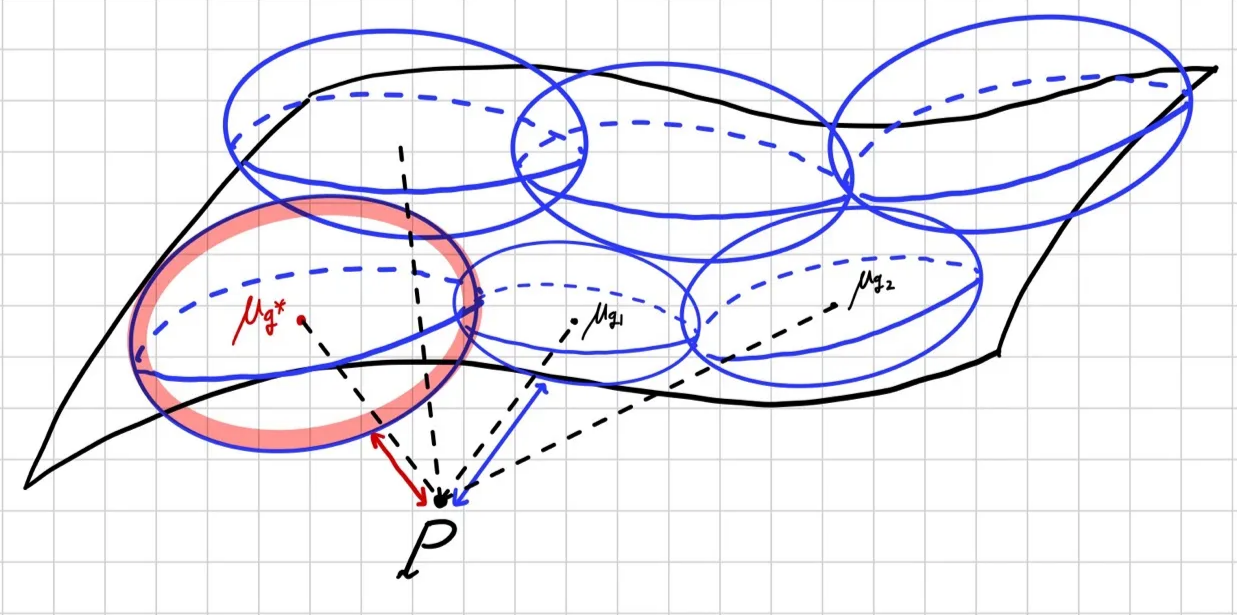 μg*
μg₁
μg₂
P